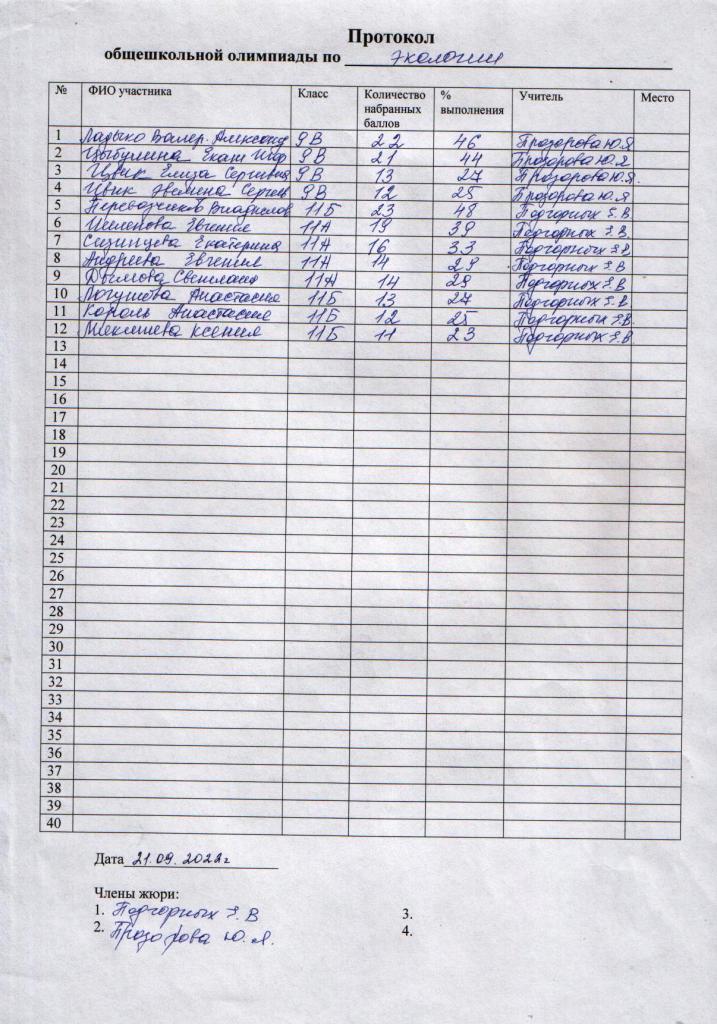 Протокол
общешкольной олимпиады по экологии
№ ФИО участника Класс Количество набранных баллов % выполнения Учитель Место
1 Ладыко Валер. Александ 9В 22 46 Прозорова Ю.Я
2 Цыбулина Екат 9В 21 44 Прозорова Ю.Я
3 Цвик Елиза Сергеевна 9В 13 27 Прозорова Ю.Я.
4 Цвик Эвелина Сергеев 9В 12 25 Прозорова Ю.Я
5 Переводчиков Владислав 11Б 23 48 Подгорных Е.В
6 Евгения 11А 19 39 Подгорных Е.В.
7 Сизинцева Екатерина 11А 16 33 Подгорных Е.В
8 Андреева Евгения 11А 14 29 Подгорных Е.В
9 Дымова Светлана 11А 14 29 Подгорных Е.В
10 Логушева Анастасия 11Б 13 27 Подгорных Е.В.
11 Король Анастасия 11Б 12 25 Подгорных Е.В.
12 Меклишева Ксения 11Б 11 23 Подгорных Е.В
13
14
15
16
17
18
19
20
21
22
23
24
25
26
27
28
29
30
31
32
33
34
35
36
37
38
39
40
Дата 21.09.2022г
Члены жюри:
1. Подгорных Е.В 3.
2. Прозорова Ю.Я. 4.